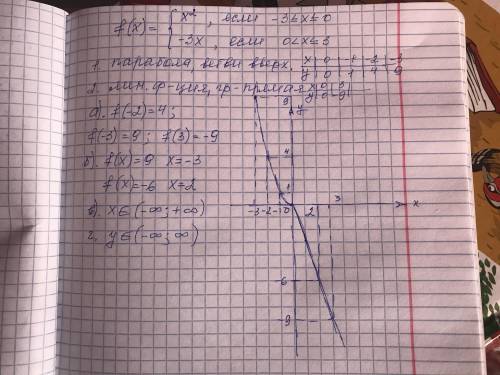 f(x) = { x², если -3≤x≤0
-3x, если 0<x≤3
1. парабола, ветви вверх. x | 0 | -1 | -2 | -3
y | 0 | 1 | 4 | 9
2. лин. ф-ция, гр-прямая x | 0 | 3 |
y | 0 | -9 |
а). f(-2)=4;
f(-3)=9; f(3)=-9
б). f(x)=9 x=-3
f(x)=-6 x=2
в). x∈(-∞;+∞)
г. y∈(-∞;∞)
9 y
4
1
-3 -2 -1 0 2 3 x
-6
-9